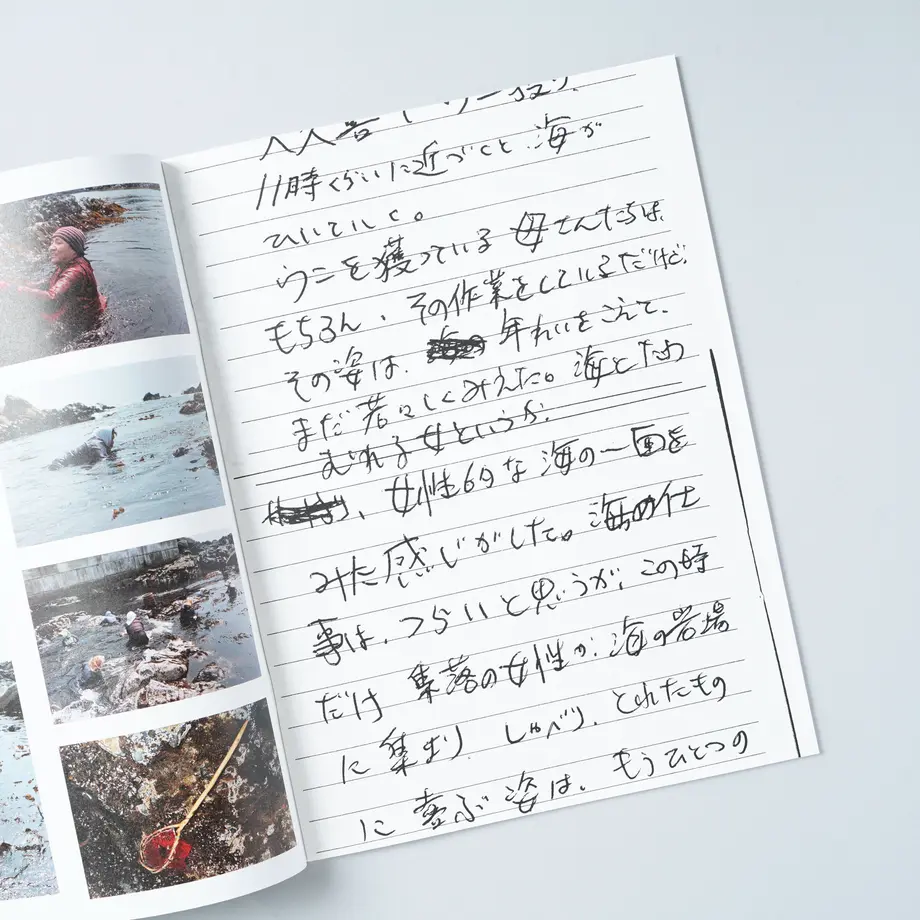 11時くらいに近づくと 海が
ひいていく。
ウニを獲っている 母さんたちは、
もちろん、その作業をしているだけど、
その姿は、 年れいをこえて、
まだ若々しくみえた。海とたわ
むれる女というか、
、女性的な海の一面を
みた感じがした。海の仕
事は、つらいと思うが、この時
だけ 集落の女性が、海の岩場
に集まり、しゃべり、とれたもの
に喜ぶ姿は、もうひとつの